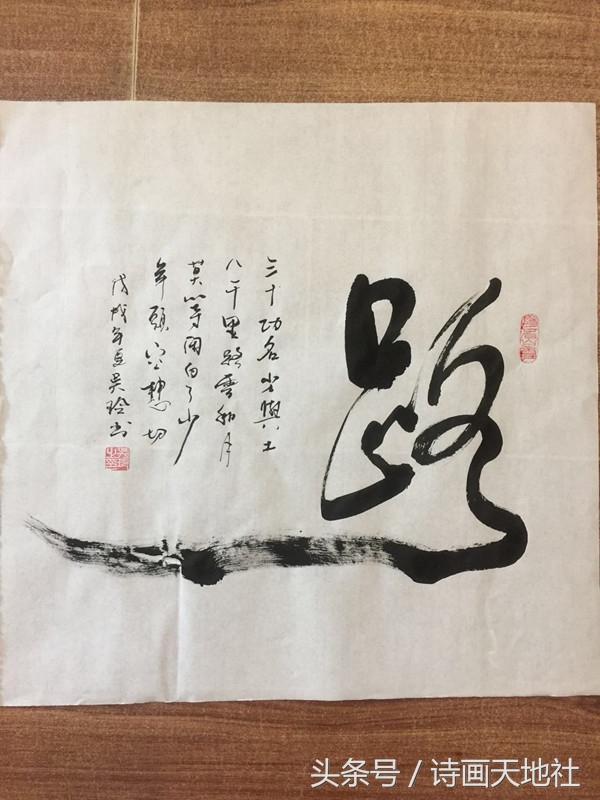 路
三十功名尘與土
八千里路雲和月
莫等闲白了少
年頭空悲切
戊戌年夏吴玲书
头条号 / 诗画天地社